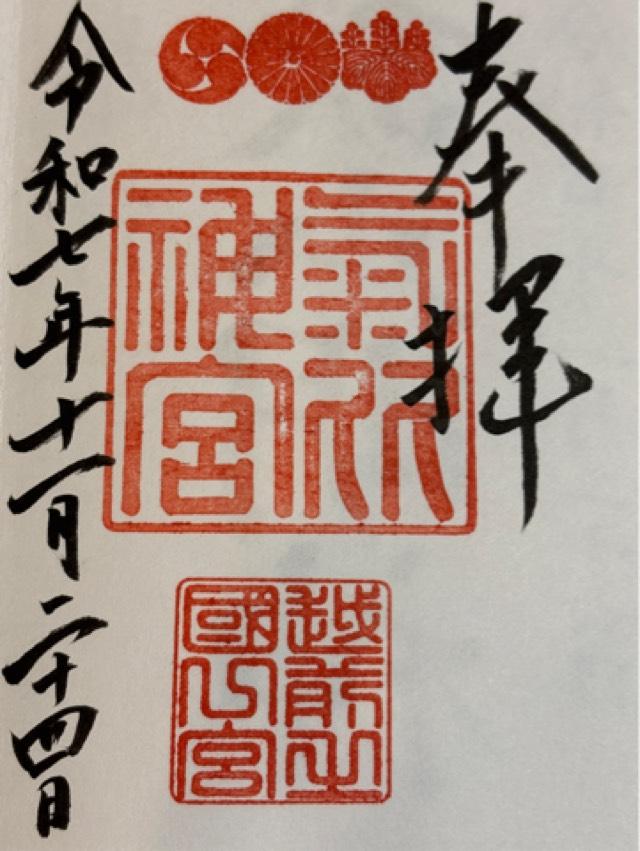 奉拝
氣比
神宮
越前之
國宮
令和七年十一月二十四日